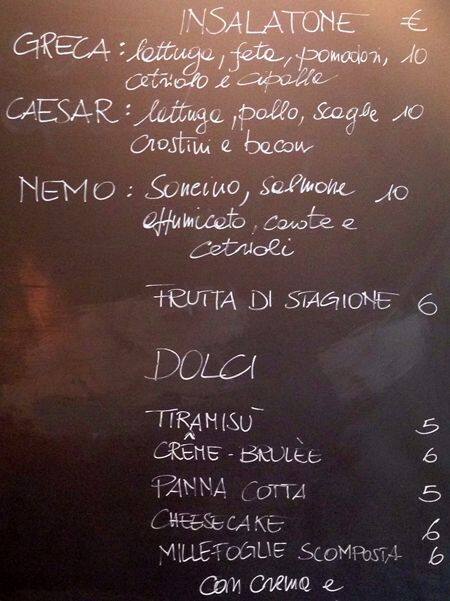 INSALATONE €
GRECA: lattuga, feta, pomodori, 10
cetriolo e cipolla
CAESAR: lattuga, pollo, scaglie 10
crostini e bacon
NEMO: Soncino, salmone 10
affumicato, carote e
cetrioli
FRUTTA DI STAGIONE 6
DOLCI
TIRAMISÙ 5
CRÊME-BRULÈE 6
PANNA COTTA 5
CHEESECAKE 6
MILLEFOGLIE SCOMPOSTA 6
con crema e